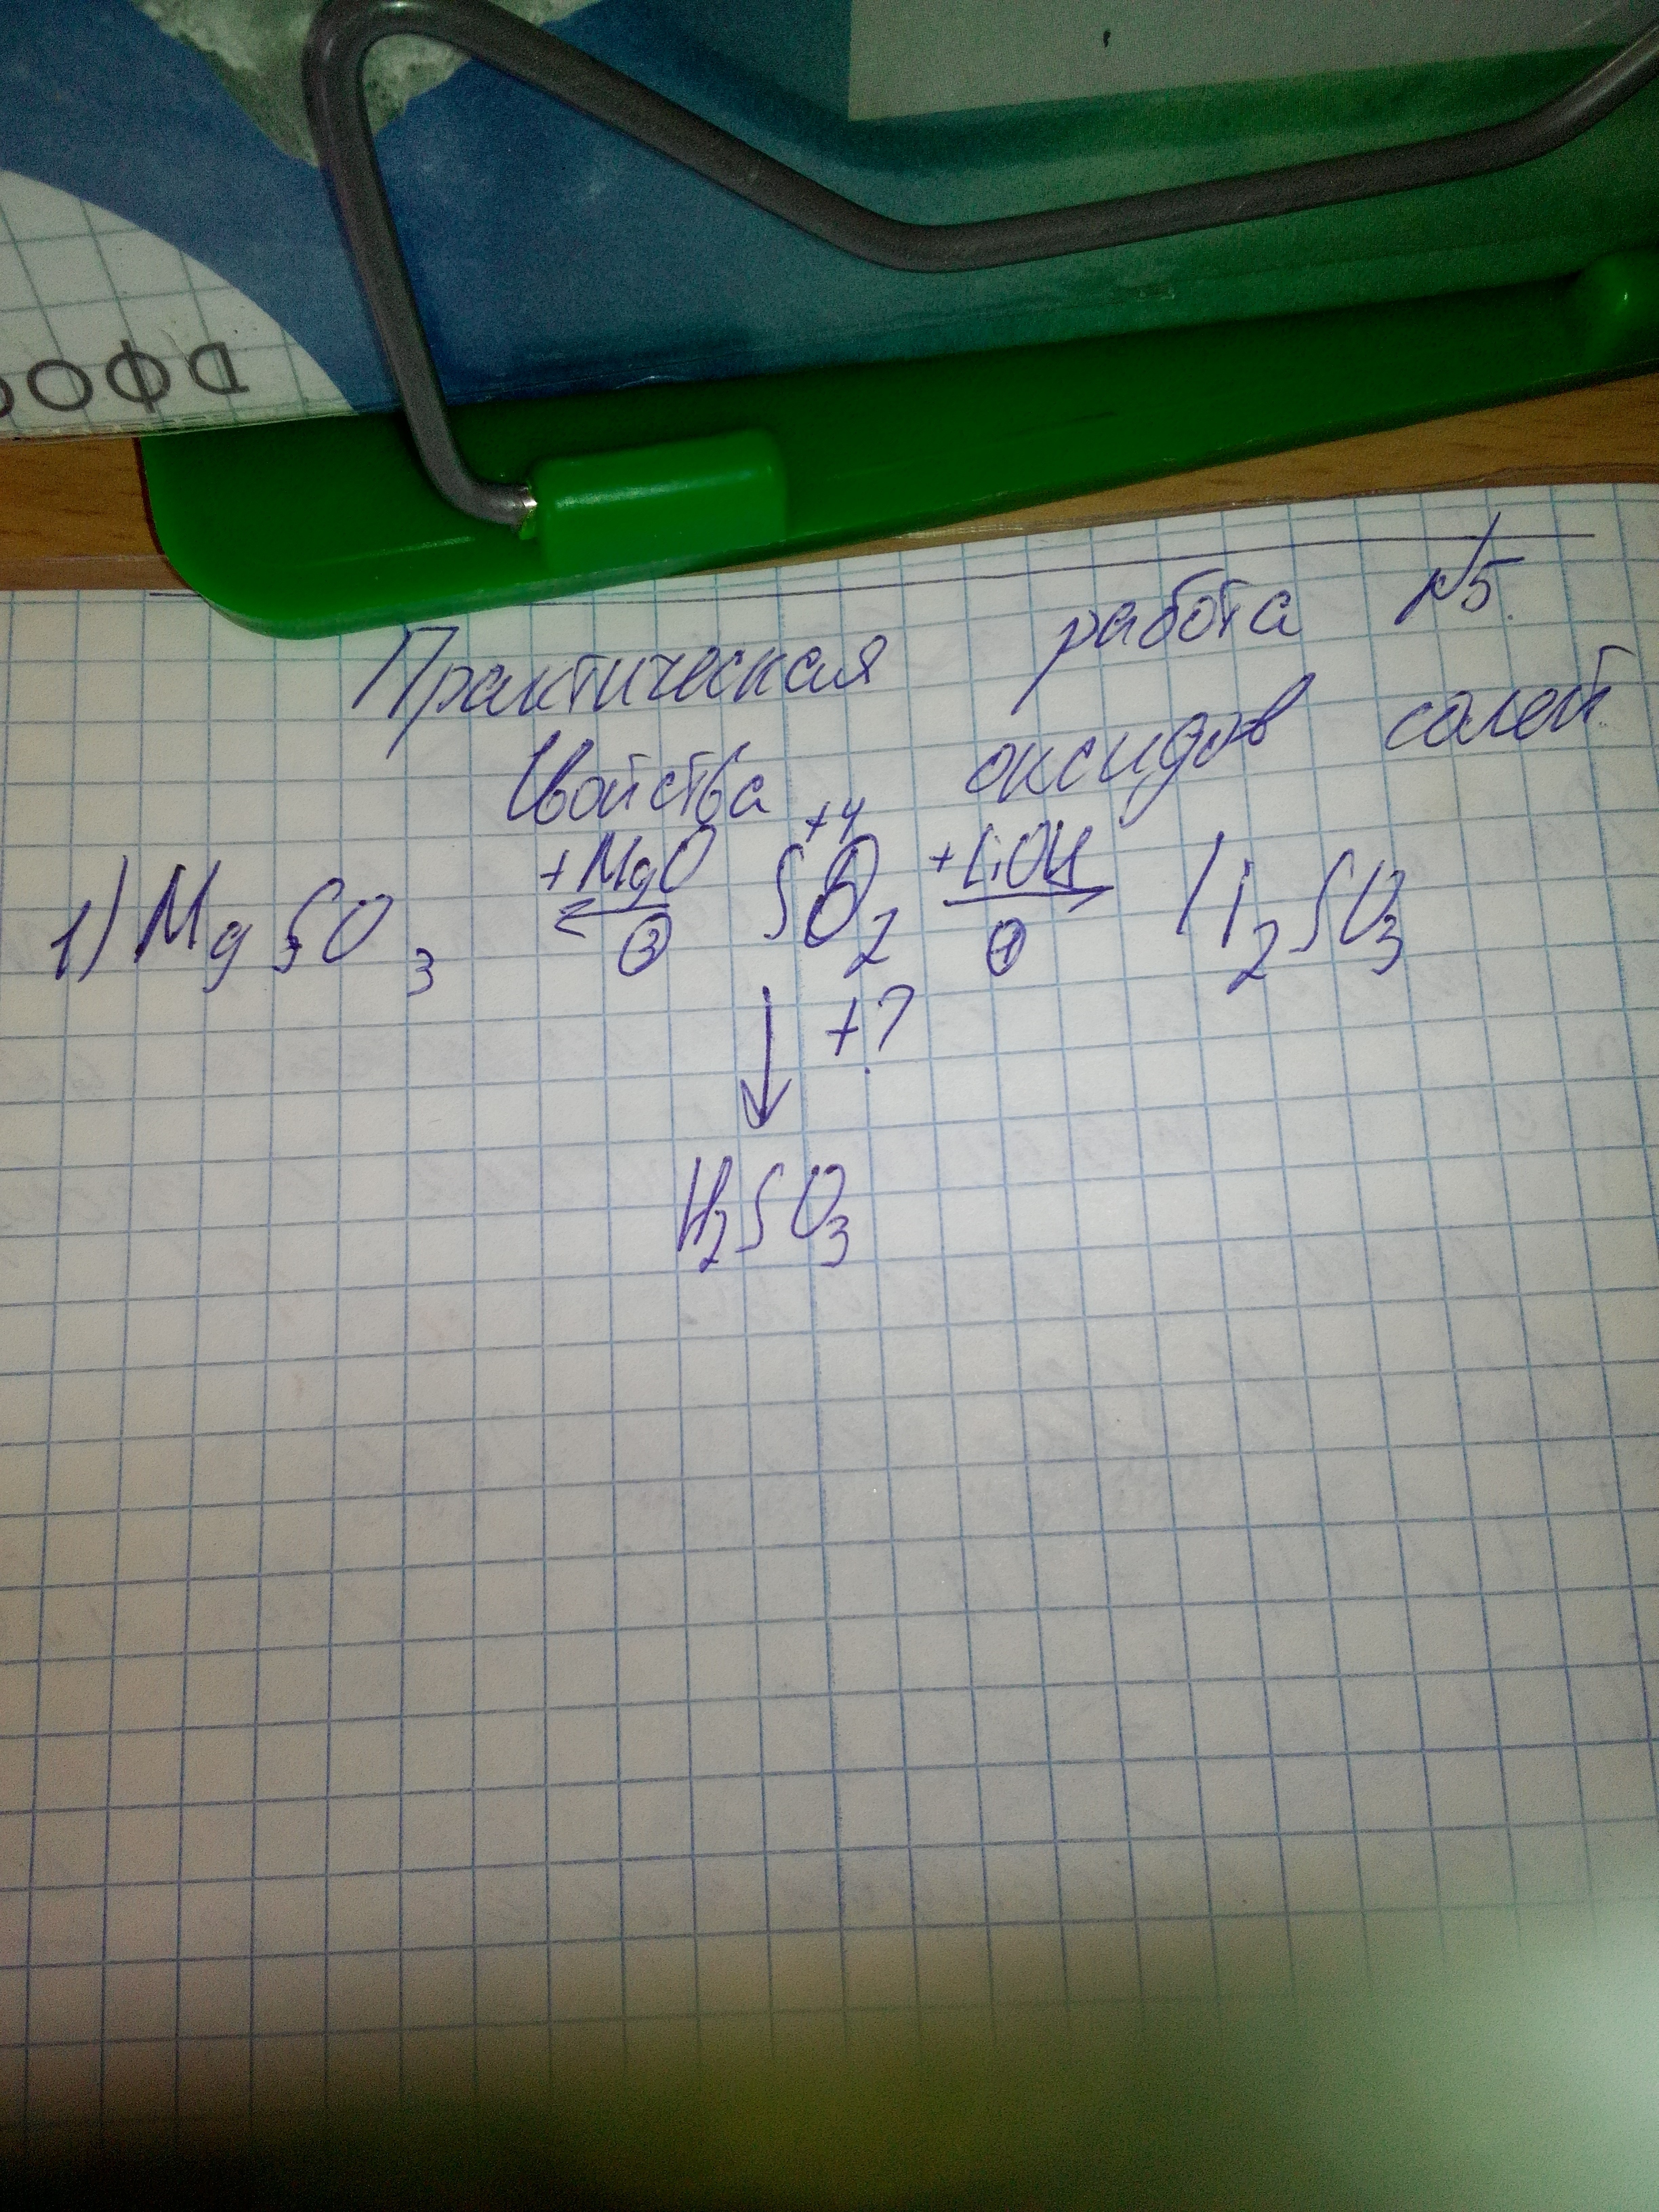 ДФО
Практическая работа №5.
Свойства оксидов солей
+4
1) MgSO3 +MgO ← ③ SO2 +LiOH → ① Li2SO3
↓ +?
H2SO3